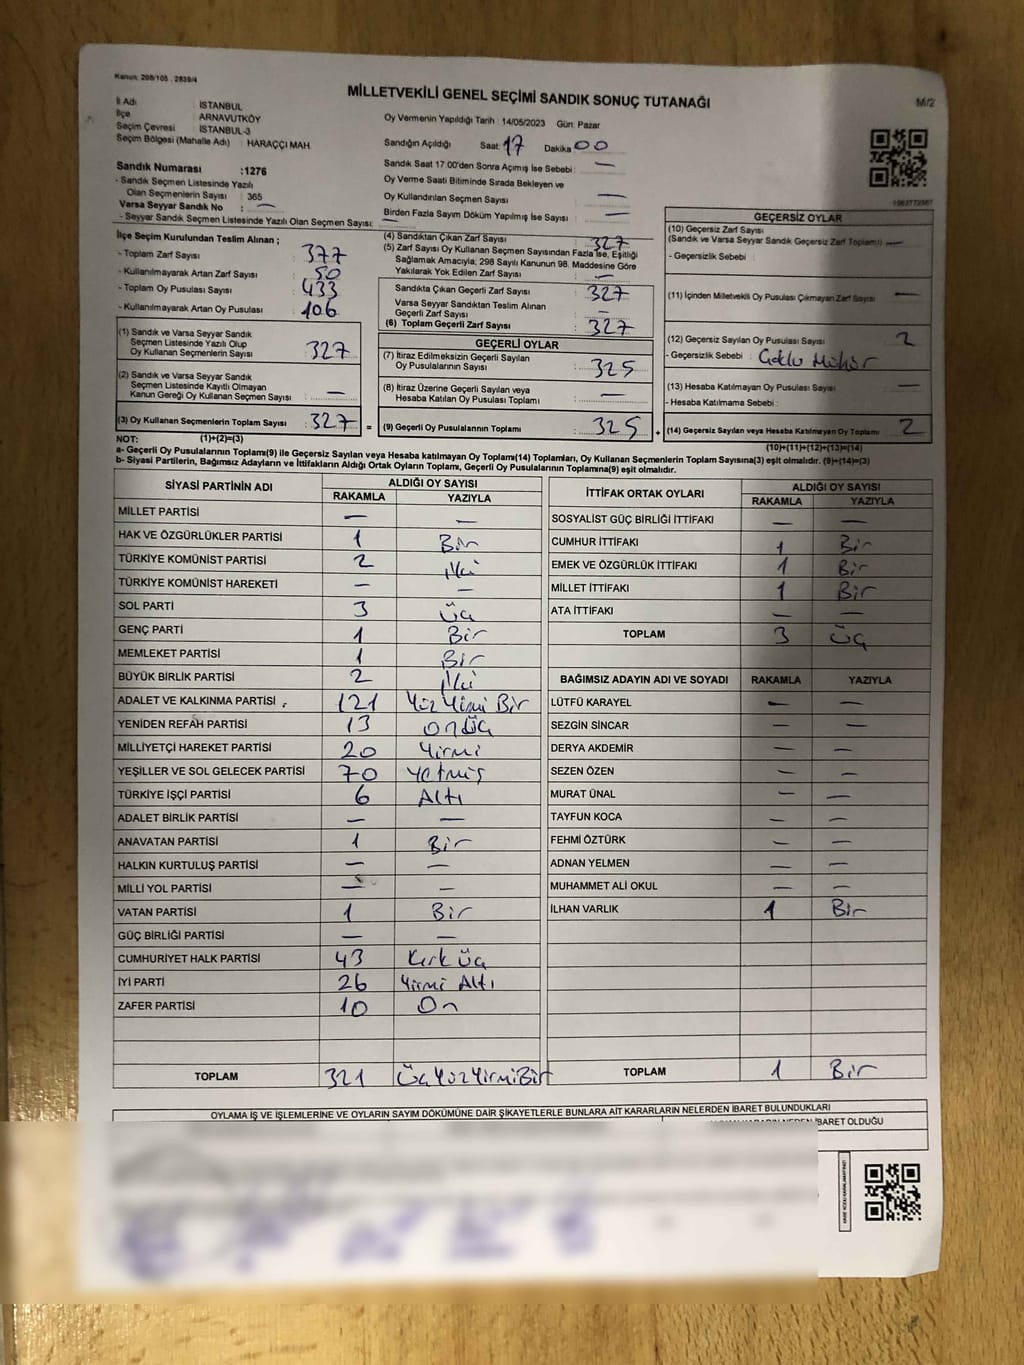 Kanun: 298/105 , 2839/4
MİLLETVEKİLİ GENEL SEÇİMİ SANDIK SONUÇ TUTANAĞI
M/2
İl Adı : İSTANBUL
İlçe : ARNAVUTKÖY
Seçim Çevresi : İSTANBUL-3
Seçim Bölgesi (Mahalle Adı) : HARAÇÇI MAH.
Oy Vermenin Yapıldığı Tarih : 14/05/2023 Gün: Pazar
Sandığın Açıldığı Saat: 17 Dakika 00
Sandık Saat 17:00'den Sonra Açılmış İse Sebebi : —
Oy Verme Saati Bitiminde Sırada Bekleyen ve
Oy Kullandırılan Seçmen Sayısı : —
Birden Fazla Sayım Döküm Yapılmış İse Sayısı : —
Sandık Numarası :1276
- Sandık Seçmen Listesinde Yazılı
Olan Seçmenlerin Sayısı : 365
Varsa Seyyar Sandık No : —
- Seyyar Sandık Seçmen Listesinde Yazılı Olan Seçmen Sayısı: —
İlçe Seçim Kurulundan Teslim Alınan ;
- Toplam Zarf Sayısı : 377
- Kullanılmayarak Artan Zarf Sayısı : 50
- Toplam Oy Pusulası Sayısı : 433
- Kullanılmayarak Artan Oy Pusulası : 106
(1) Sandık ve Varsa Seyyar Sandık
Seçmen Listesinde Yazılı Olup
Oy Kullanan Seçmenlerin Sayısı : 327
(2) Sandık ve Varsa Seyyar Sandık
Seçmen Listesinde Kayıtlı Olmayan
Kanun Gereği Oy Kullanan Seçmen Sayısı : —
(3) Oy Kullanan Seçmenlerin Toplam Sayısı : 327
(1)+(2)=(3)
(4) Sandıktan Çıkan Zarf Sayısı : 327
(5) Zarf Sayısı Oy Kullanan Seçmen Sayısından Fazla İse, Eşitliği
Sağlamak Amacıyla, 298 Sayılı Kanunun 98. Maddesine Göre
Yakılarak Yok Edilen Zarf Sayısı : —
Sandıkta Çıkan Geçerli Zarf Sayısı : 327
Varsa Seyyar Sandıktan Teslim Alınan
Geçerli Zarf Sayısı : —
(6) Toplam Geçerli Zarf Sayısı : 327
GEÇERLİ OYLAR
(7) İtiraz Edilmeksizin Geçerli Sayılan
Oy Pusulalarının Sayısı : 325
(8) İtiraz Üzerine Geçerli Sayılan veya
Hesaba Katılan Oy Pusulası Toplamı : —
= (9) Geçerli Oy Pusulalarının Toplamı : 325
GEÇERSİZ OYLAR
(10) Geçersiz Zarf Sayısı
(Sandık ve Varsa Seyyar Sandık Geçersiz Zarf Toplamı) : —
- Geçersizlik Sebebi :
(11) İçinden Milletvekili Oy Pusulası Çıkmayan Zarf Sayısı : —
(12) Geçersiz Sayılan Oy Pusulası Sayısı : 2
- Geçersizlik Sebebi : Çoklu Mühür
(13) Hesaba Katılmayan Oy Pusulası Sayısı : —
- Hesaba Katılmama Sebebi :
+ (14) Geçersiz Sayılan veya Hesaba Katılmayan Oy Toplamı : 2
(10)+(11)+(12)+(13)=(14)
NOT:
a- Geçerli Oy Pusulalarının Toplamı(9) ile Geçersiz Sayılan veya Hesaba katılmayan Oy Toplamı(14) Toplamları, Oy Kullanan Seçmenlerin Toplam Sayısına(3) eşit olmalıdır. (9)+(14)=(3)
b- Siyasi Partilerin, Bağımsız Adayların ve İttifakların Aldığı Ortak Oyların Toplamı, Geçerli Oy Pusulalarının Toplamına(9) eşit olmalıdır.
SİYASİ PARTİNİN ADI ALDIĞI OY SAYISI
RAKAMLA YAZIYLA
MİLLET PARTİSİ — —
HAK VE ÖZGÜRLÜKLER PARTİSİ 1 Bir
TÜRKİYE KOMÜNİST PARTİSİ 2 İki
TÜRKİYE KOMÜNİST HAREKETİ — —
SOL PARTİ 3 Üç
GENÇ PARTİ 1 Bir
MEMLEKET PARTİSİ 1 Bir
BÜYÜK BİRLİK PARTİSİ 2 İki
ADALET VE KALKINMA PARTİSİ 121 Yüz Yirmi Bir
YENİDEN REFAH PARTİSİ 13 On Üç
MİLLİYETÇİ HAREKET PARTİSİ 20 Yirmi
YEŞİLLER VE SOL GELECEK PARTİSİ 70 Yetmiş
TÜRKİYE İŞÇİ PARTİSİ 6 Altı
ADALET BİRLİK PARTİSİ — —
ANAVATAN PARTİSİ 1 Bir
HALKIN KURTULUŞ PARTİSİ — —
MİLLİ YOL PARTİSİ — —
VATAN PARTİSİ 1 Bir
GÜÇ BİRLİĞİ PARTİSİ — —
CUMHURİYET HALK PARTİSİ 43 Kırk Üç
İYİ PARTİ 26 Yirmi Altı
ZAFER PARTİSİ 10 On
TOPLAM 321 Üç Yüz Yirmi Bir
İTTİFAK ORTAK OYLARI ALDIĞI OY SAYISI
RAKAMLA YAZIYLA
SOSYALİST GÜÇ BİRLİĞİ İTTİFAKI — —
CUMHUR İTTİFAKI 1 Bir
EMEK VE ÖZGÜRLÜK İTTİFAKI 1 Bir
MİLLET İTTİFAKI 1 Bir
ATA İTTİFAKI — —
TOPLAM 3 Üç
BAĞIMSIZ ADAYIN ADI VE SOYADI RAKAMLA YAZIYLA
LÜTFÜ KARAYEL — —
SEZGİN SİNCAR — —
DERYA AKDEMİR — —
SEZEN ÖZEN — —
MURAT ÜNAL — —
TAYFUN KOCA — —
FEHMİ ÖZTÜRK — —
ADNAN YELMEN — —
MUHAMMET ALİ OKUL — —
İLHAN VARLIK 1 Bir
TOPLAM 1 Bir
OYLAMA İŞ VE İŞLEMLERİNE VE OYLARIN SAYIM DÖKÜMÜNE DAİR ŞİKAYETLERLE BUNLARA AİT KARARLARIN NELERDEN İBARET BULUNDUKLARI
İBARET OLDUĞU